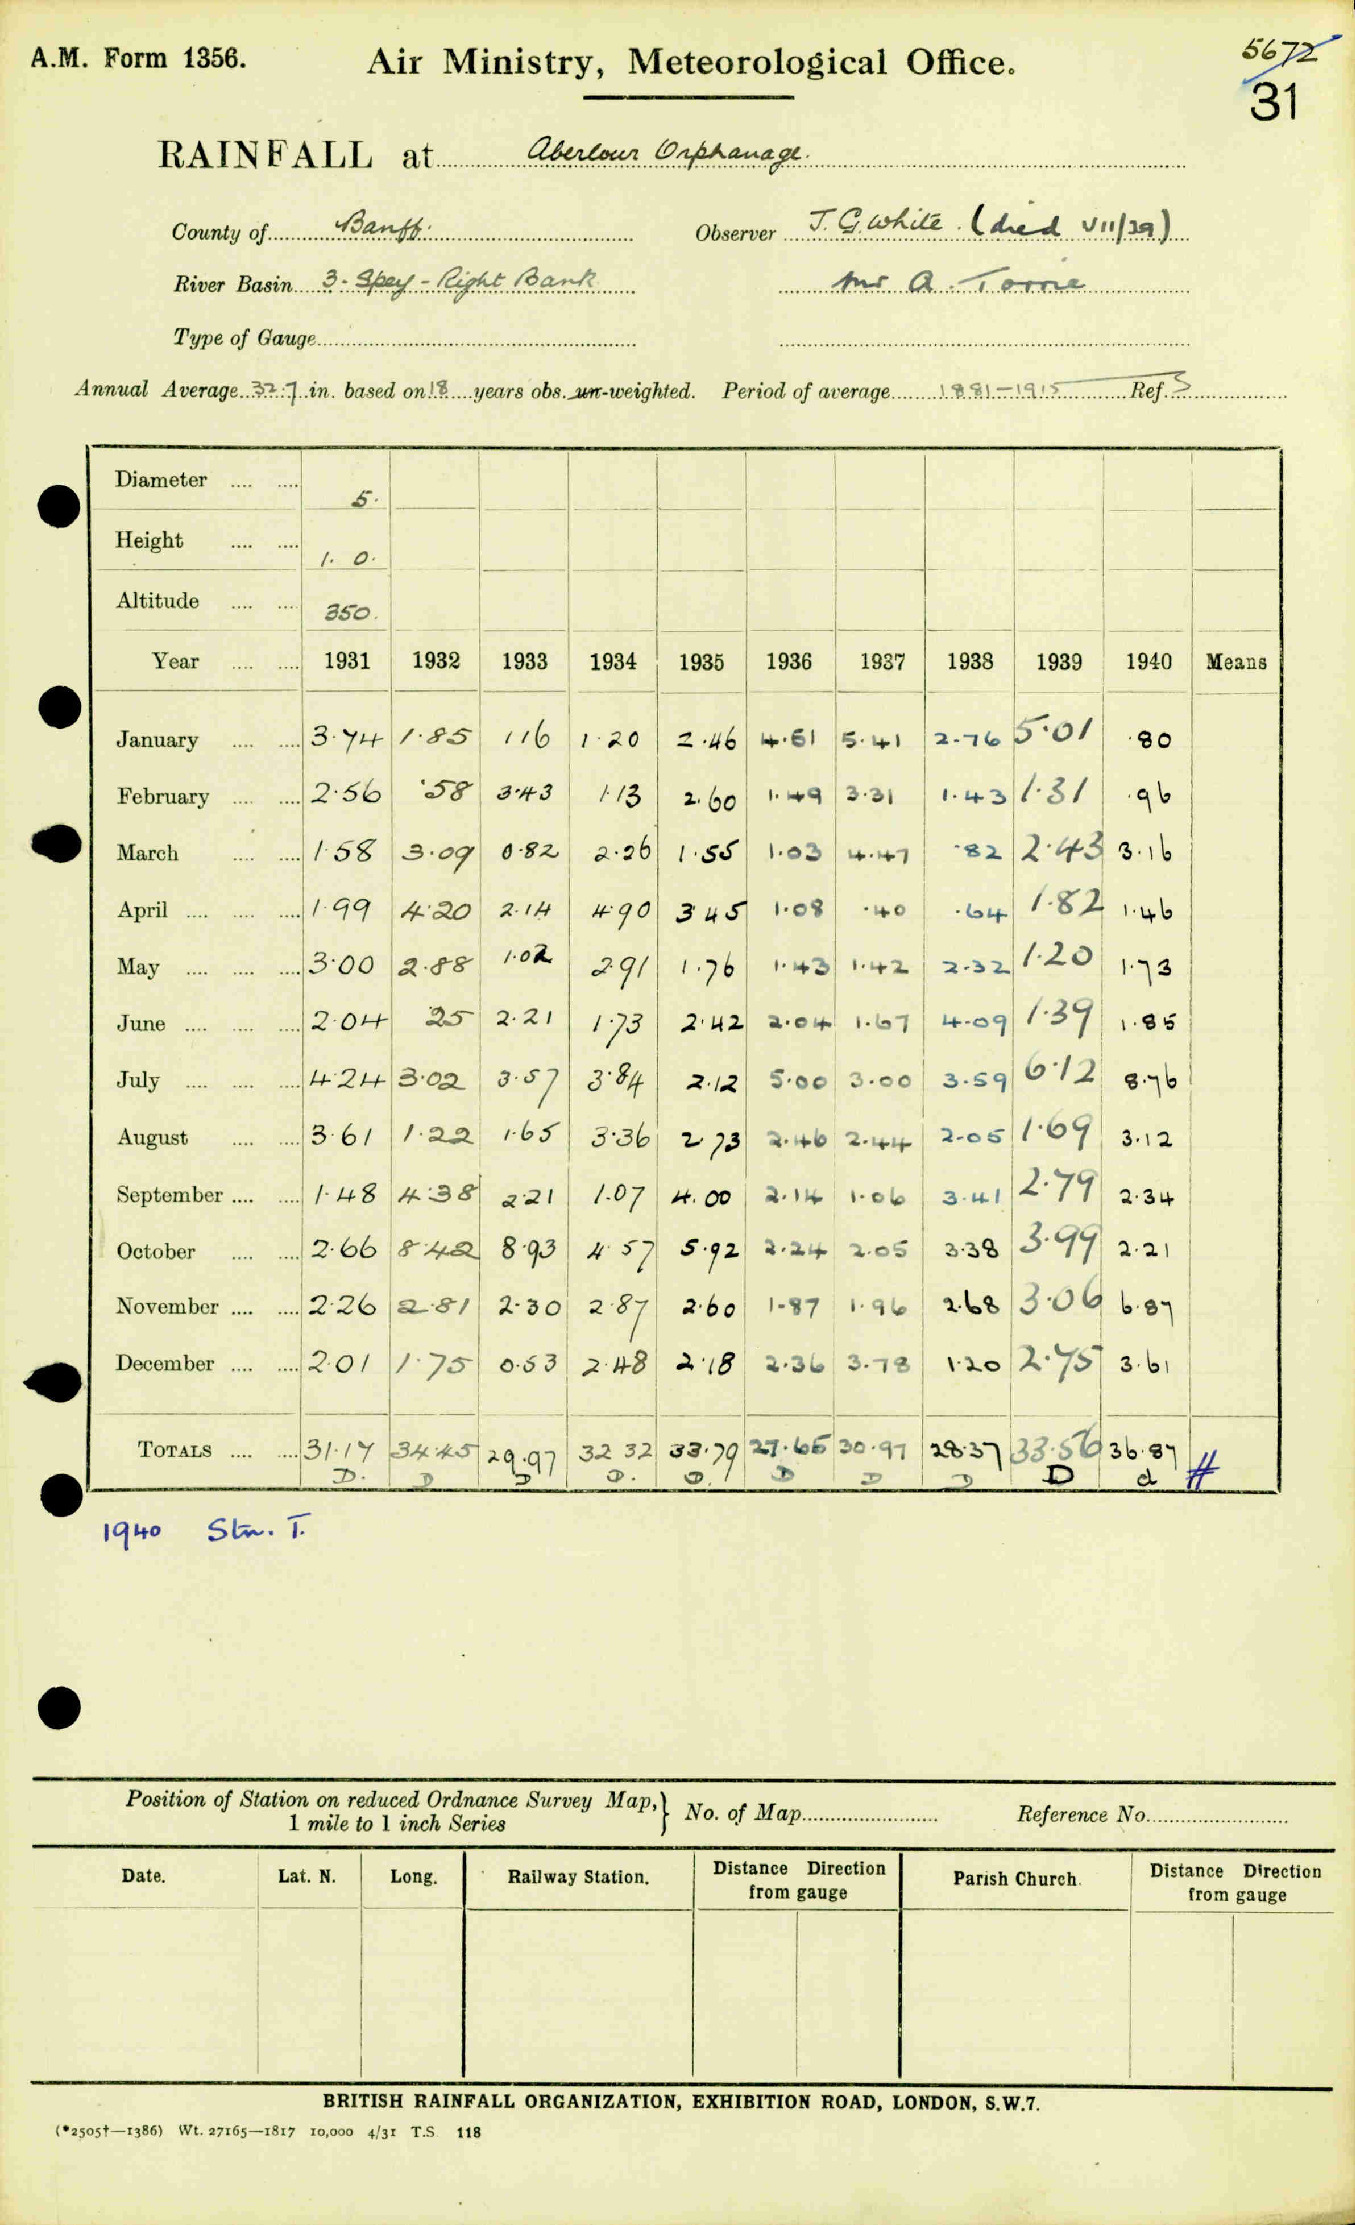 A.M. Form 1356.
Air Ministry, Meteorological Office.
5672
31
RAINFALL at Aberlour Orphanage.
County of Banff. Observer J. G. White. (died VII/39)
River Basin 3. Spey - Right Bank Mr A. Torrie
Type of Gauge
Annual Average 32.7 in. based on 18 years obs. un-weighted. Period of average 1881-1915 Ref. S
Diameter .... .... 5.
Height .... .... 1. 0.
Altitude .... .... 350.
Year .... .... 1931 1932 1933 1934 1935 1936 1937 1938 1939 1940 Means
January .... .... 3.74 1.85 1 16 1 20 2.46 4.51 5.41 2.76 5.01 .80
February .... .... 2.56 .58 3.43 1.13 2.60 1.49 3.31 1.43 1.31 .96
March .... .... 1.58 3.09 0.82 2.26 1.55 1.03 4.47 .82 2.43 3.16
April .... .... .... 1.99 4.20 2.14 4.90 3 45 1.08 .40 .64 1.82 1.46
May .... .... .... 3.00 2.88 1.02 2.91 1.76 1.43 1.42 2.32 1.20 1.73
June .... .... .... 2.04 .25 2.21 1.73 2.42 2.04 1.67 4.09 1.39 1.85
July .... .... .... 4.24 3.02 3.57 3.84 2.12 5.00 3.00 3.59 6.12 8.76
August .... .... 3.61 1.22 1.65 3.36 2.73 2.46 2.44 2.05 1.69 3.12
September .... .... 1.48 4.38 2.21 1.07 4.00 2.14 1.06 3.41 2.79 2.34
October .... .... 2.66 8.42 8.93 4 57 5.92 2.24 2.05 3.38 3.99 2.21
November .... .... 2.26 2.81 2.30 2.87 2.60 1.87 1.96 2.68 3.06 6.87
December .... .... 2.01 1.75 0.53 2.48 2.18 2.36 3.78 1.20 2.75 3.61
TOTALS .... .... 31.17 34.45 29.97 32 32 33.79 27.65 30.97 28.37 33.56 36.87
D. D D D. D. D D D D d #
1940 Stn. T.
Position of Station on reduced Ordnance Survey Map, } No. of Map Reference No.
1 mile to 1 inch Series
Date. Lat. N. Long. Railway Station. Distance Direction from gauge Parish Church. Distance Direction from gauge
BRITISH RAINFALL ORGANIZATION, EXHIBITION ROAD, LONDON, S.W.7.
(*2505†—1386) Wt. 27165—1817 10,000 4/31 T.S 118